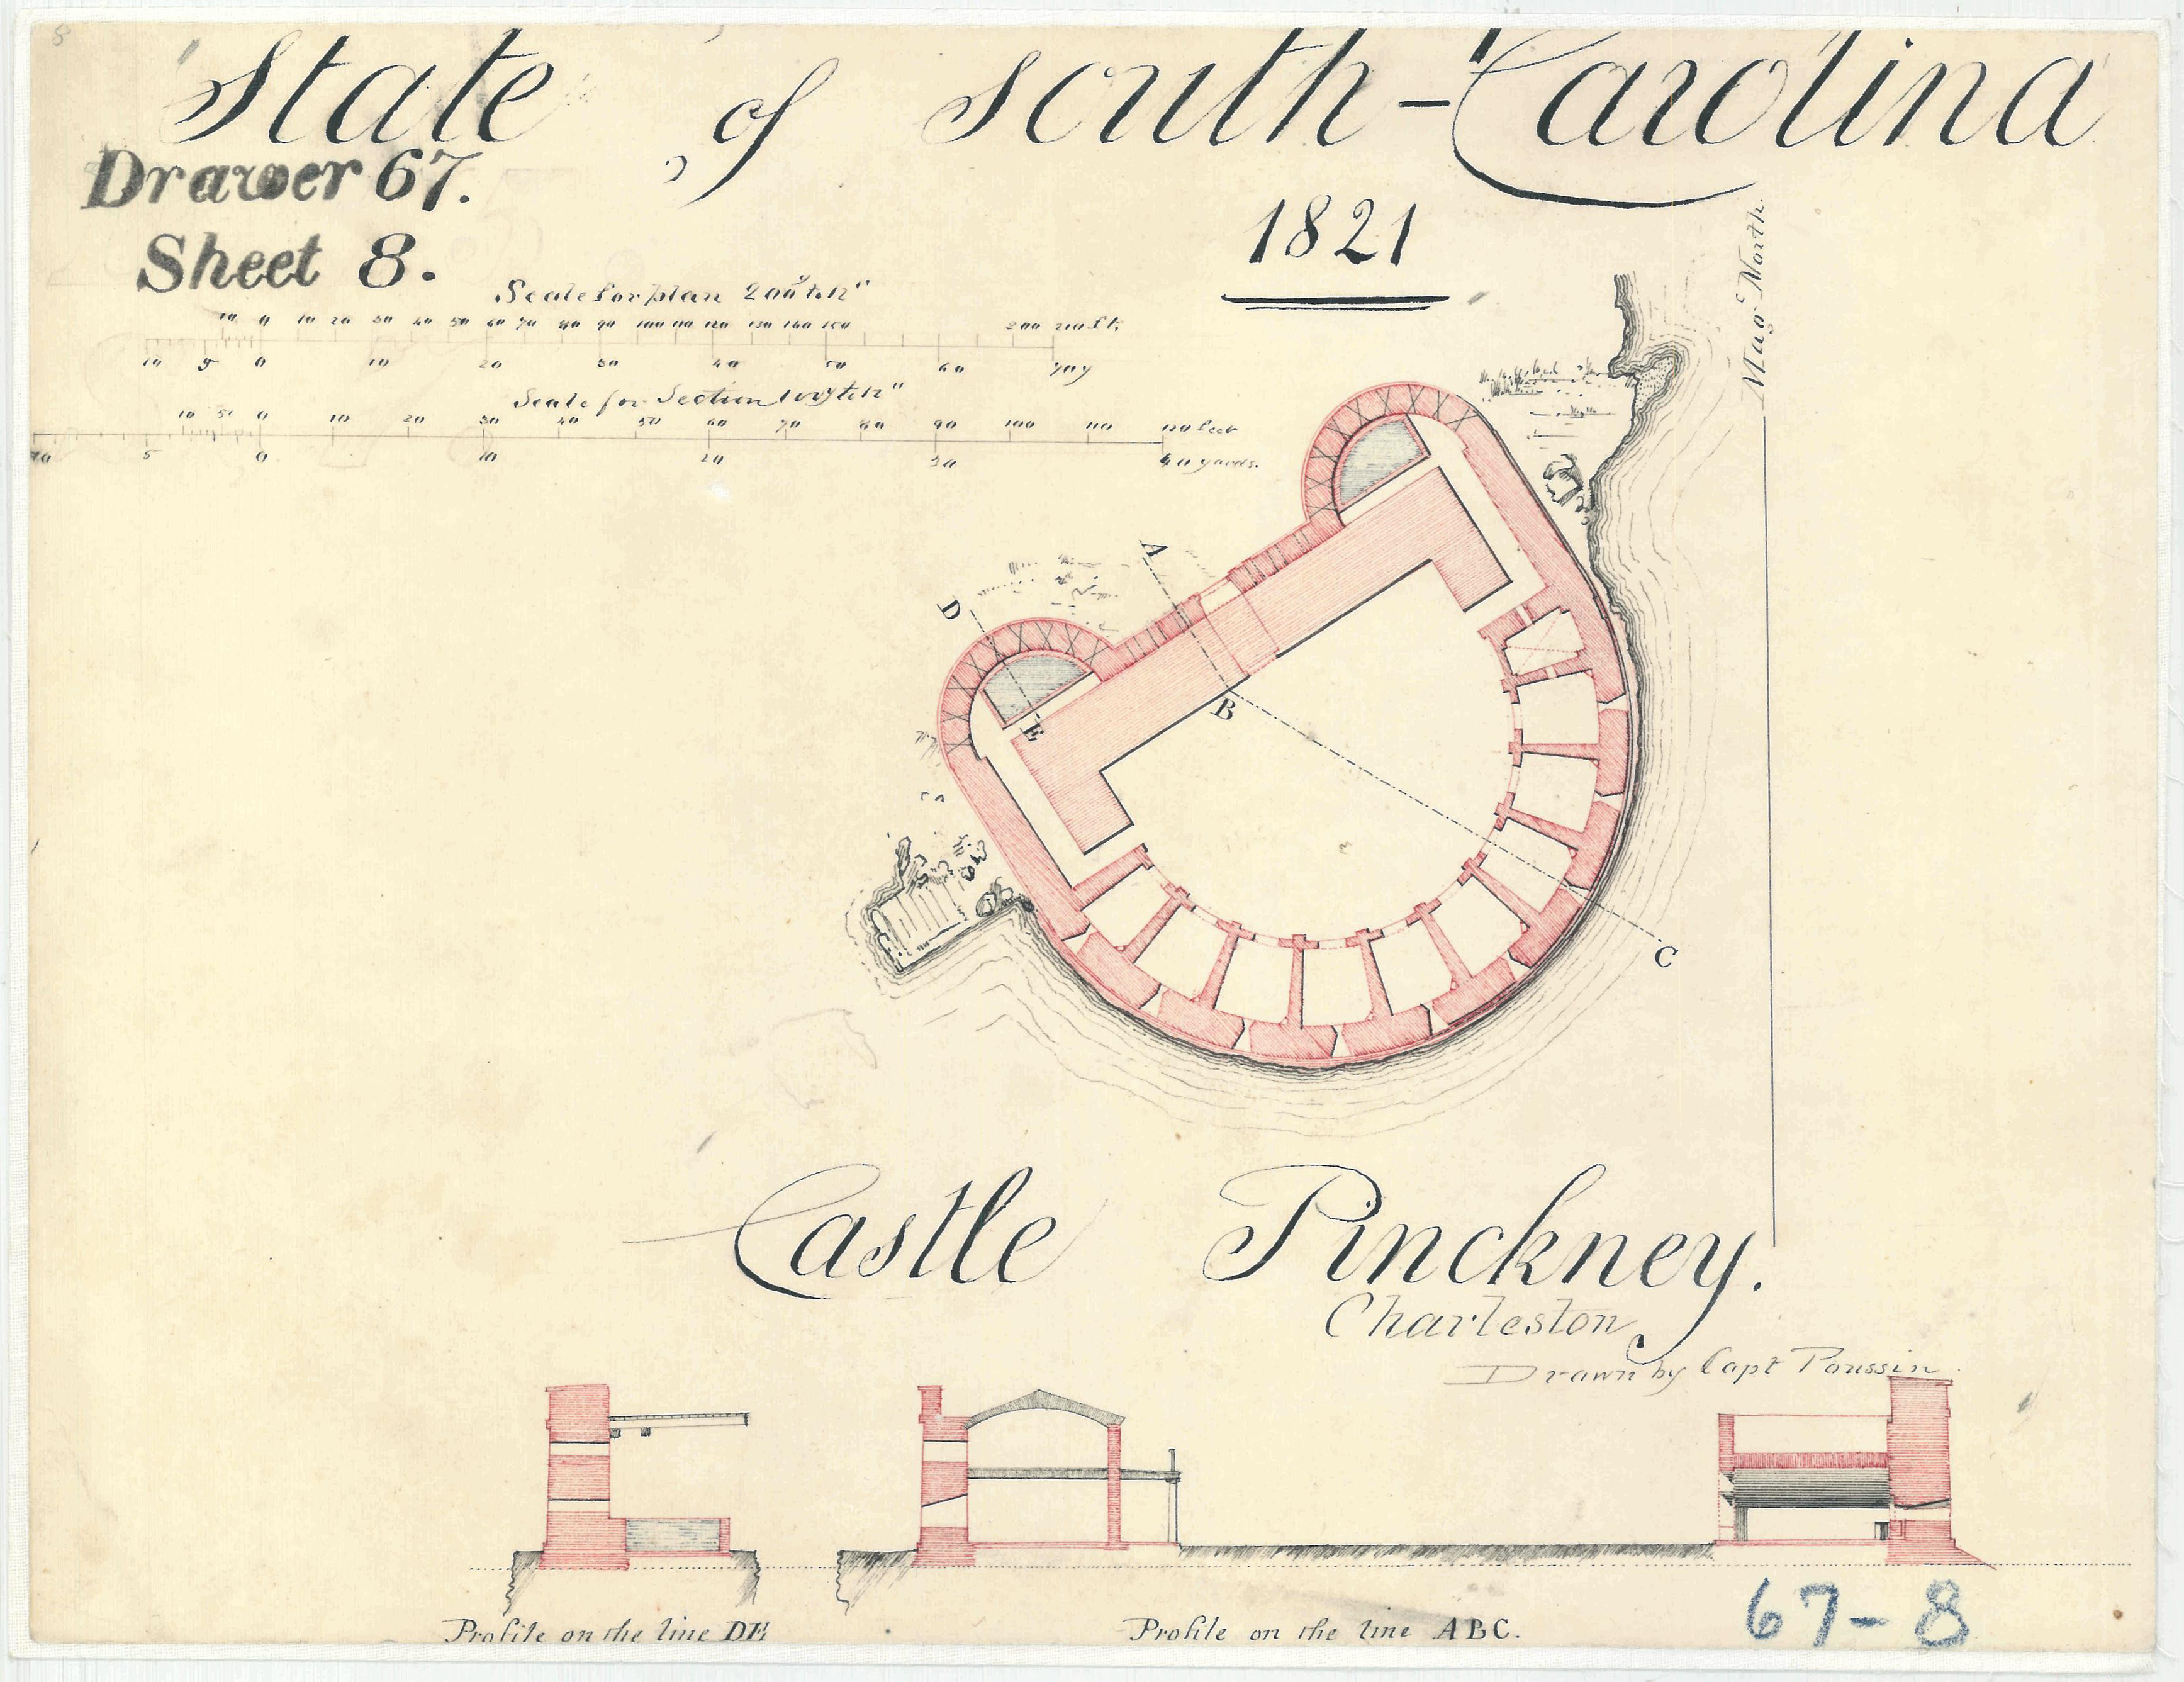 8
State of South-Carolina
Drawer 67.
Sheet 8.
1821
Mag North.
Scale for plan
10 0 10 20 30 40 50 60 70 80 90 100 110 120 130 140 150 200 210 ft.
10 5 0 10 20 30 40 50 60 70 y
Scale for Section
10 5 0 10 20 30 40 50 60 70 80 90 100 110 120 feet
10 5 0 10 20 30 40 yards.
A
D
B
E
C
Castle Pinckney.
Charleston
Drawn by Capt Poussin
Profile on the line DE
Profile on the line ABC.
67-8